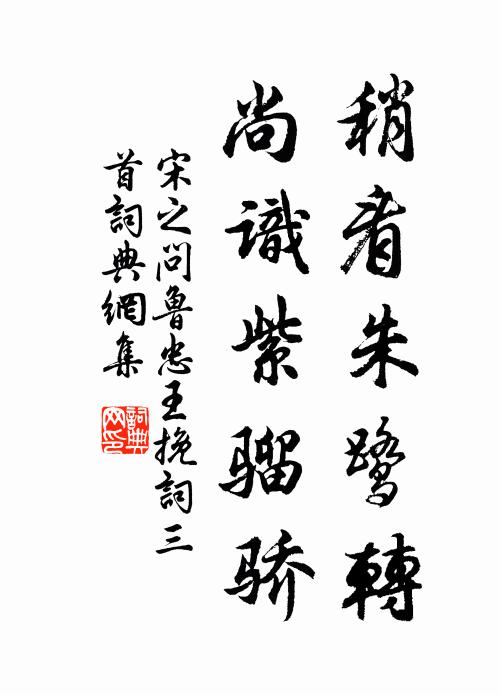 稍看朱鹭轉
尚識紫騮骄
宋之问魯忠王挽詞三
首詞典網集
詞典网印